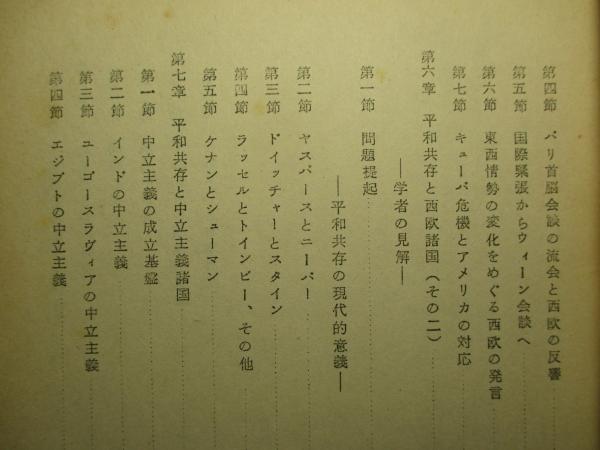 第四節 パリ首脳会談の流会と西欧の反響
第五節 国際緊張からウィーン会談へ
第六節 東西情勢の変化をめぐる西欧の発言
第七節 キューバ危機とアメリカの対応
第六章 平和共存と西欧諸国（その二）
―学者の見解―
第一節 問題提起
―平和共存の現代的意義―
第二節 ヤスパースとニーバー
第三節 ドイッチャーとスタイン
第四節 ラッセルとトインビー、その他
第五節 ケナンとシューマン
第七章 平和共存と中立主義諸国
第一節 中立主義の成立基盤
第二節 インドの中立主義
第三節 ユーゴースラヴィアの中立主義
第四節 エジプトの中立主義